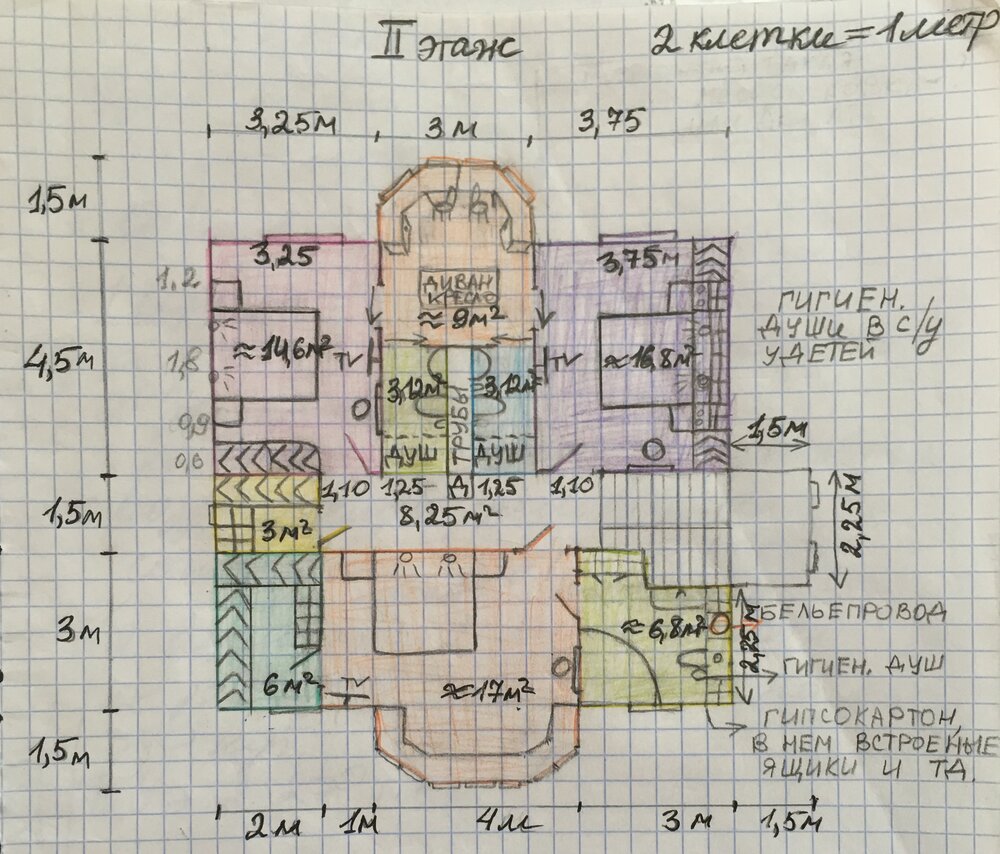 II этаж
2 клетки = 1 метр
3,25м
3 м
3,75
1,5м
3,25
3,75м
1,2
ДИВАН
КРЕСЛО
≈ 9м²
ГИГИЕН.
ДУШИ В С/У
У ДЕТЕЙ
4,5м
1,8
≈14,6м²
TV
3,12м²
ТРУБЫ
3,12м²
TV
≈16,8м²
0,9
1,5м
0,6
ДУШ
ДУШ
1,10
1,25
Д
1,25
1,10
2,25м
1,5м
3м²
8,25м²
3м
≈6,8м²
2,25м
БЕЛЬЕПРОВОД
ГИГИЕН. ДУШ
6м²
TV
≈17м²
ГИПСОКАРТОН,
В НЕМ ВСТРОЕНЫЕ
ЯЩИКИ И ТД.
1,5м
2м
1м
4м
3м
1,5м